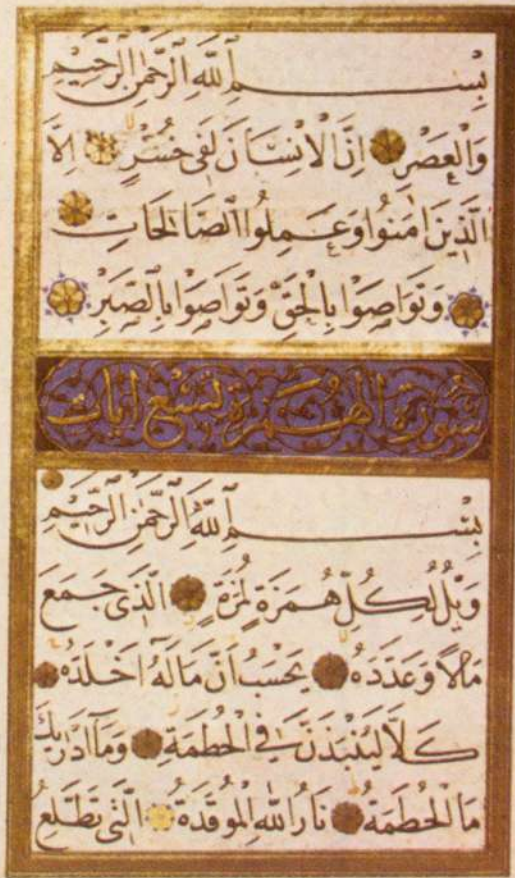 بِسْمِ اللَّهِ الرَّحْمٰنِ الرَّحِيمِ
وَالْعَصْرِ اِنَّ الْاِنْسَانَ لَفِى خُسْرٍ اِلَّا
الَّذِينَ اٰمَنُوا وَعَمِلُوا الصَّالِحَاتِ
وَتَوَاصَوْا بِالْحَقِّ وَتَوَاصَوْا بِالصَّبْرِ
سُورَةُ الْهُمَزَةِ تِسْعُ اٰيَات
بِسْمِ اللَّهِ الرَّحْمٰنِ الرَّحِيمِ
وَيْلٌ لِكُلِّ هُمَزَةٍ لُمَزَةٍ الَّذِى جَمَعَ
مَالًا وَعَدَّدَهُ يَحْسَبُ اَنَّ مَالَهُ اَخْلَدَهُ
كَلَّا لَيُنْبَذَنَّ فِى الْحُطَمَةِ وَمَا اَدْرٰيكَ
مَا الْحُطَمَةُ نَارُ اللّٰهِ الْمُوقَدَةُ الَّتِى تَطَّلِعُ